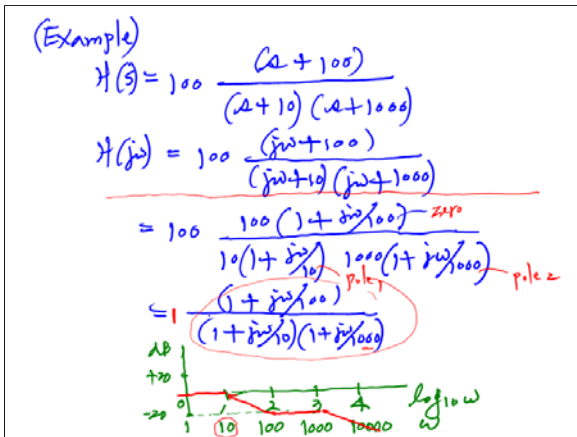 (Example)
H(s) = 100 (s + 100) / (s + 10) (s + 1000)
H(jω) = 100 (jω + 100) / (jω + 10) (jω + 1000)
= 100 100 (1 + jω/100) / 10 (1 + jω/10) 1000 (1 + jω/1000)
zero
pole 1
pole 2
= 1 (1 + jω/100) / (1 + jω/10) (1 + jω/1000)
dB
+20
0 1 2 3 4 log10 ω
-20
1 10 100 1000 10000 ω